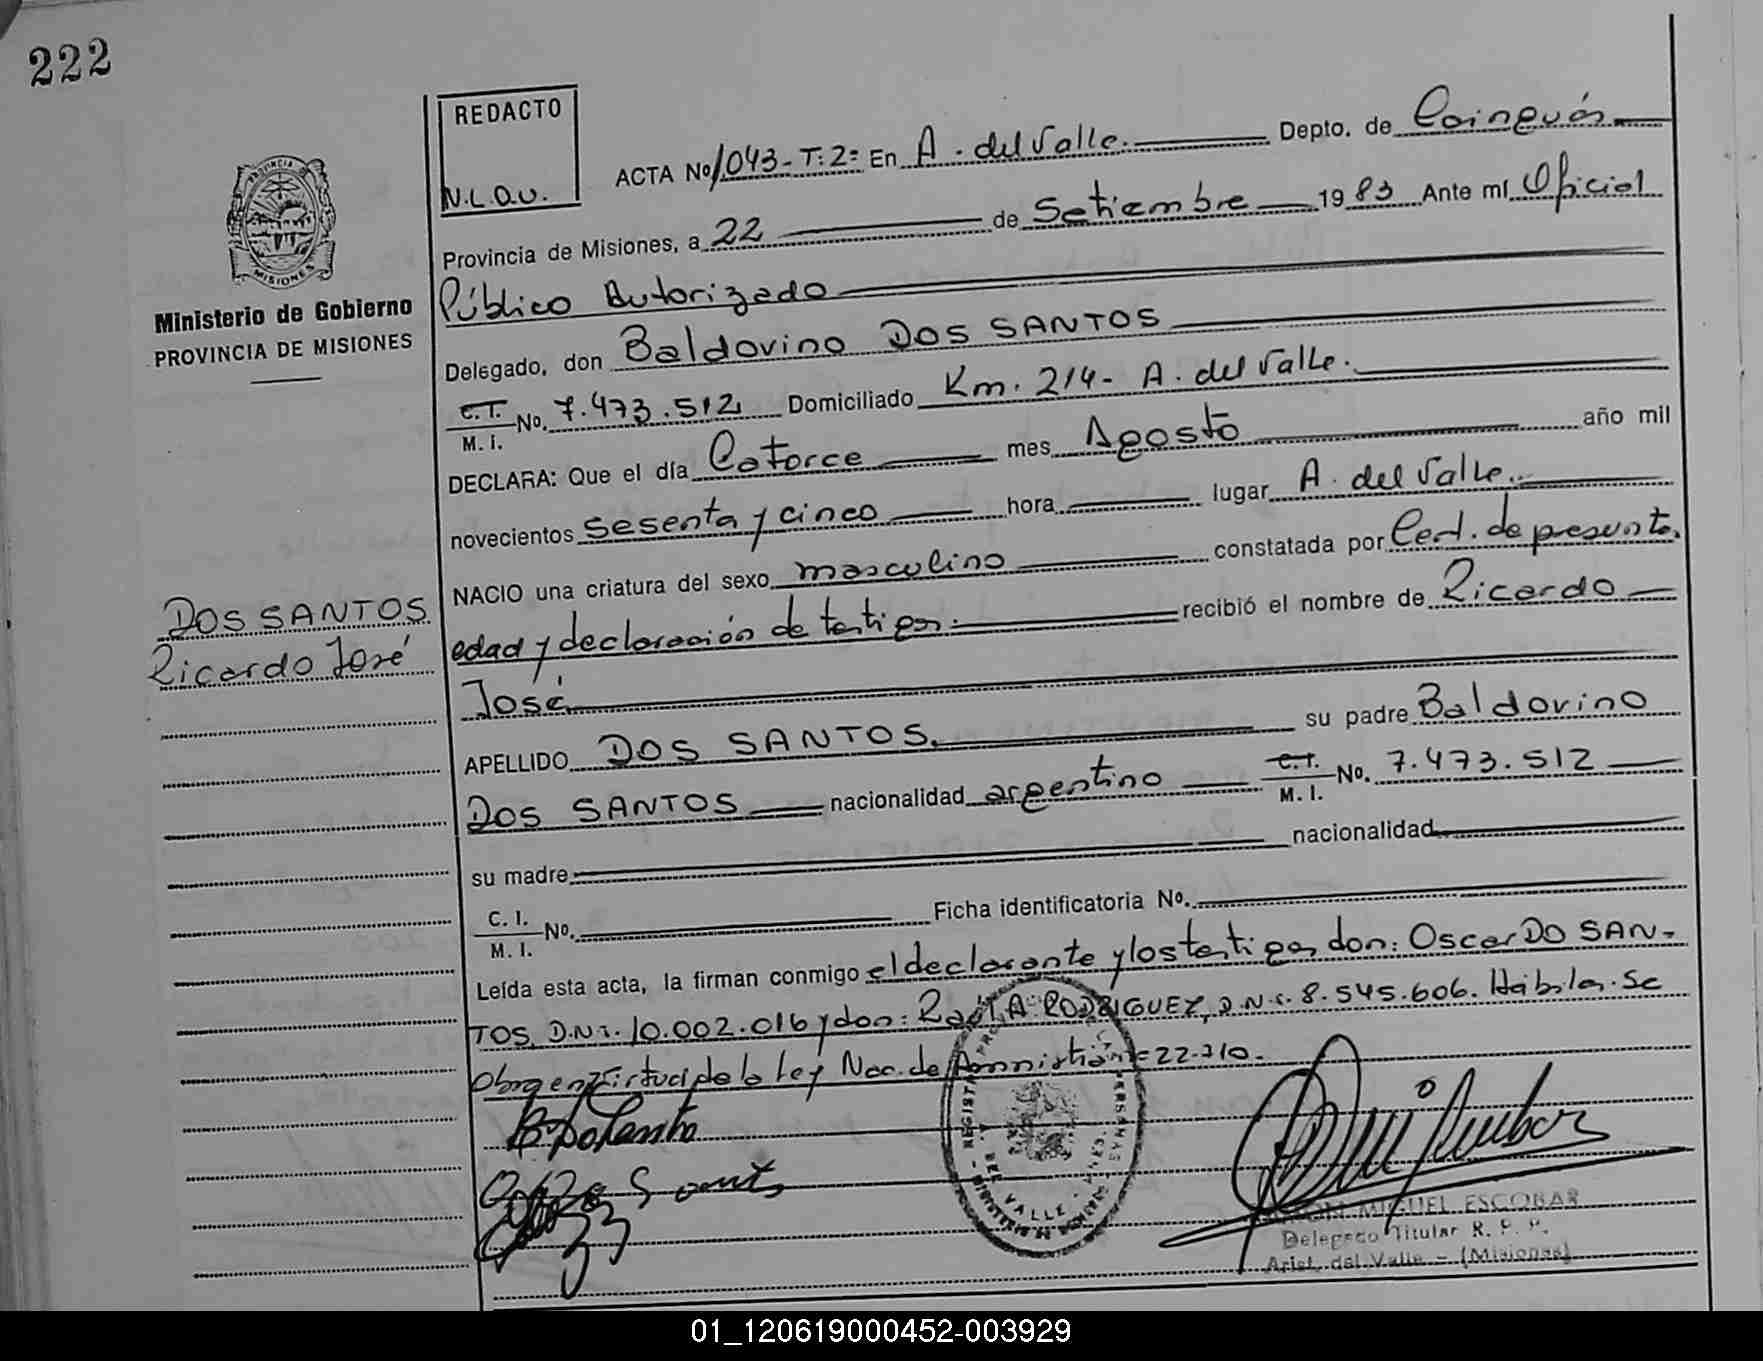 222
REDACTO
N.L.O.V.
ACTA Nº 1043-T:2= En A. del Valle. Depto. de Cainguás
Provincia de Misiones, a 22 de Setiembre 1983 Ante mí Oficial
Público Autorizado
Delegado, don Baldovino DOS SANTOS
C.I. M.I. No. 7.473.512 Domiciliado Km. 214- A. del Valle.
DECLARA: Que el día Catorce mes Agosto año mil
novecientos sesenta y cinco hora lugar A. del Valle.
NACIO una criatura del sexo masculino constatada por Cert. de presunta
edad y declaración de testigos. recibió el nombre de Ricardo
José
APELLIDO DOS SANTOS. su padre Baldovino
DOS SANTOS nacionalidad argentino C.I. M.I. No. 7.473.512
su madre nacionalidad
C. I. M. I. Nº. Ficha identificatoria Nº.
Leída esta acta, la firman conmigo el declarante y los testigos don: Oscar DO SAN-
TOS, D.N.I. 10.002.016 y don: Raúl A. RODRIGUEZ, D.N.I. 8.545.606. Hábiles. Se
Obra en virtud de la Ley Nac. de Amnistía Nº 22.210.
MIGUEL ESCOBAR
Delegado Titular R. P. P.
Arist. del Valle - (Misiones)
PROVINCIA
MISIONES
Ministerio de Gobierno
PROVINCIA DE MISIONES
DOS SANTOS
Ricardo José
01_120619000452-003929